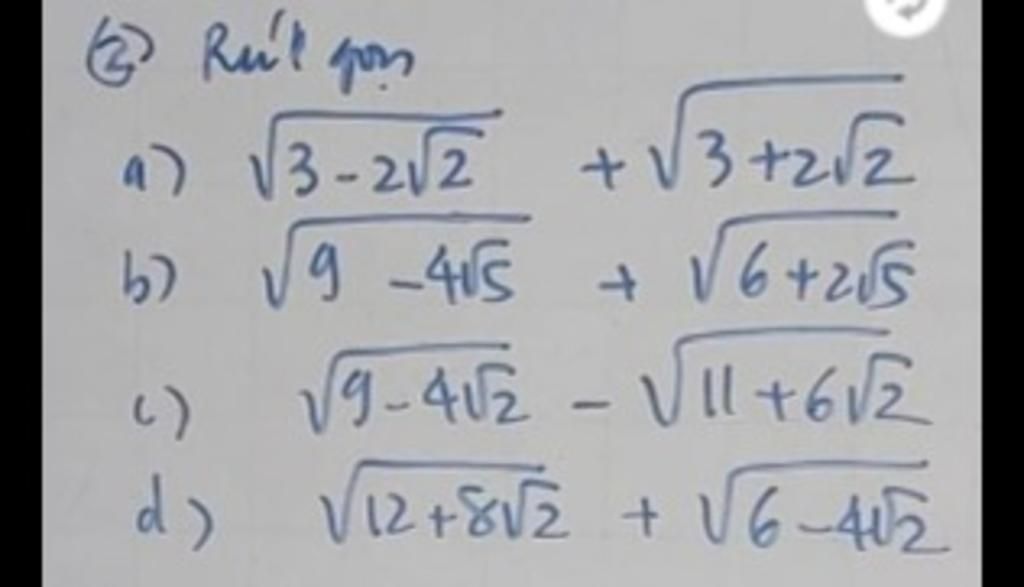 ② Rút gọn
a) √(3 - 2√2) + √(3 + 2√2)
b) √(9 - 4√5) + √(6 + 2√5)
c) √(9 - 4√2) - √(11 + 6√2)
d) √(12 + 8√2) + √(6 - 4√2)